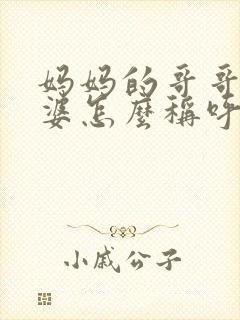 妈妈的哥哥
婆怎麼稱呼
小戚公子